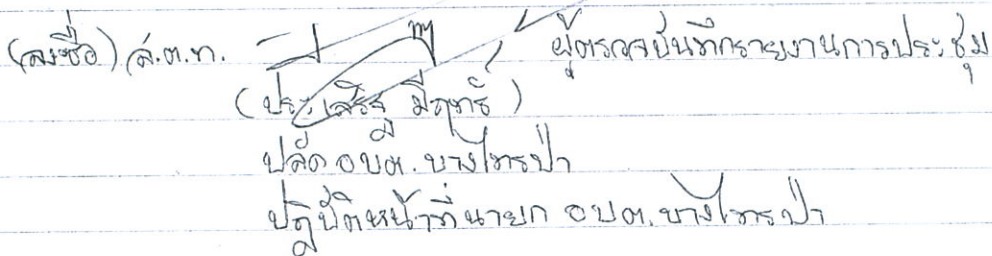 (ลงชื่อ) ส.ต.ท. ผู้ตรวจบันทึกรายงานการประชุม
(ประเสริฐ มีฤทธิ์)
ปลัด อบต.บางไทรป่า
ปฏิบัติหน้าที่ นายก อบต.บางไทรป่า